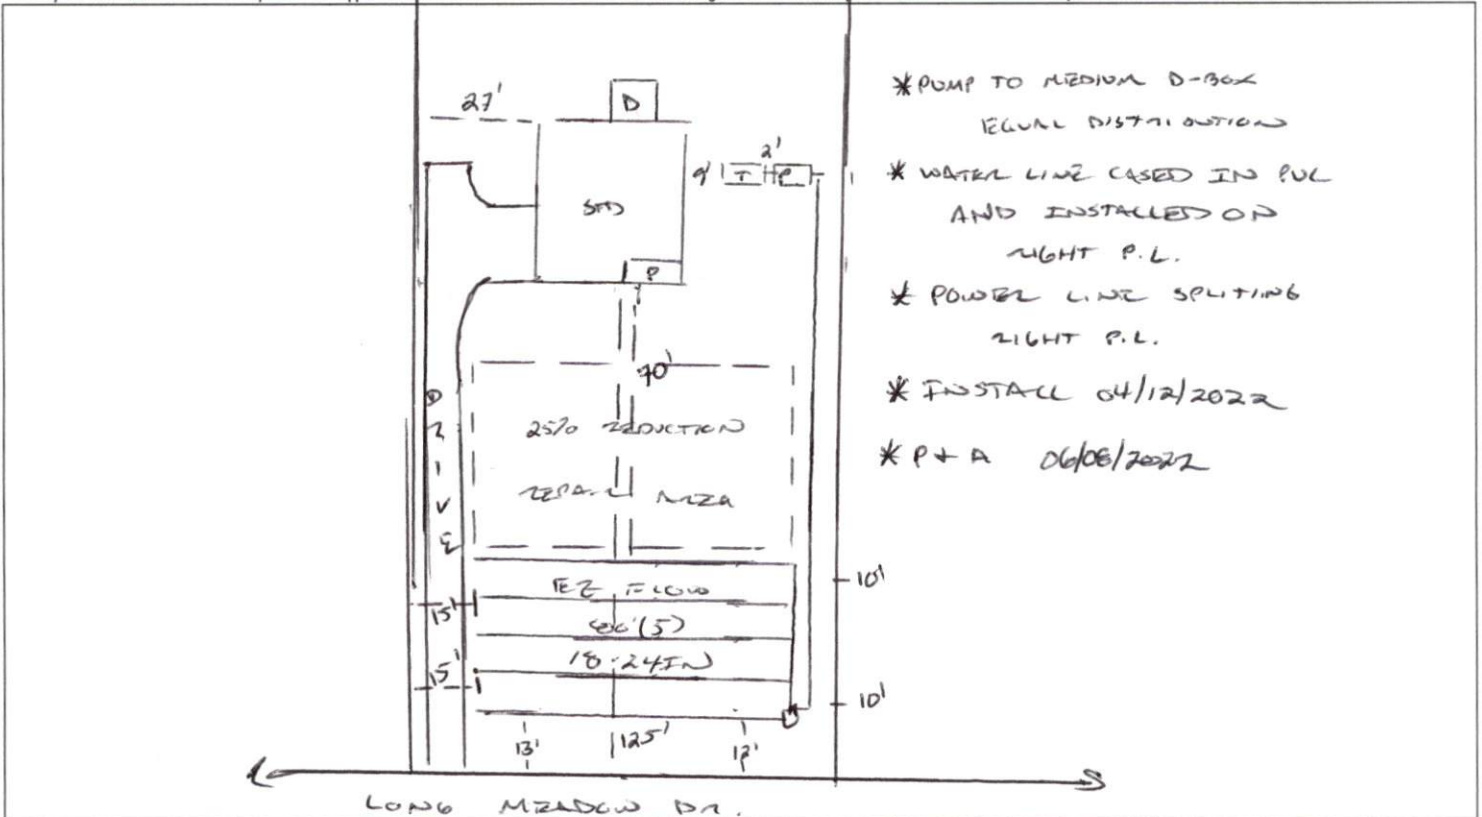 27'
D
2'
9'
T
P
STD
P
70'
25% REDUCTION
REPAIR AREA
DRIVE
EZ FLOW
(5)
18-24IN
15'
15'
10'
10'
13'
125'
12'
LONG MEADOW DR.
*PUMP TO MEDIUM D-BOX
EQUAL DISTRIBUTION
* WATER LINE CASED IN PVC
AND INSTALLED ON
RIGHT P.L.
* POWER LINE SPLITING
RIGHT P.L.
* INSTALL 04/12/2022
* P+A 06/08/2022